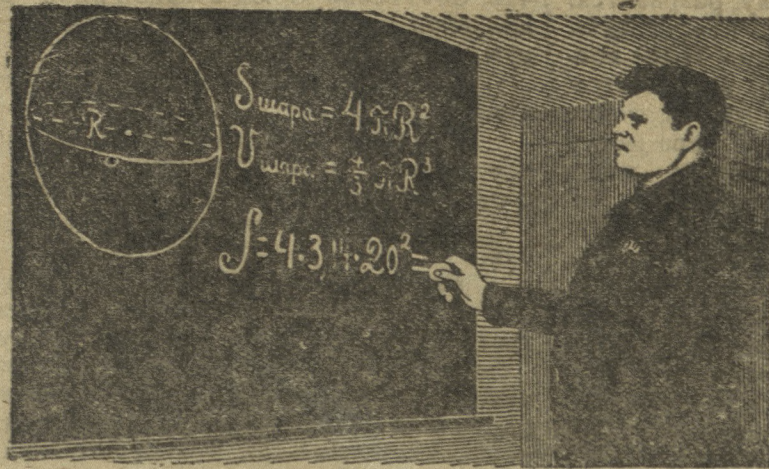 R
S шара = 4πR²
V шара = 4/3 πR³
S = 4·3,14·20² =